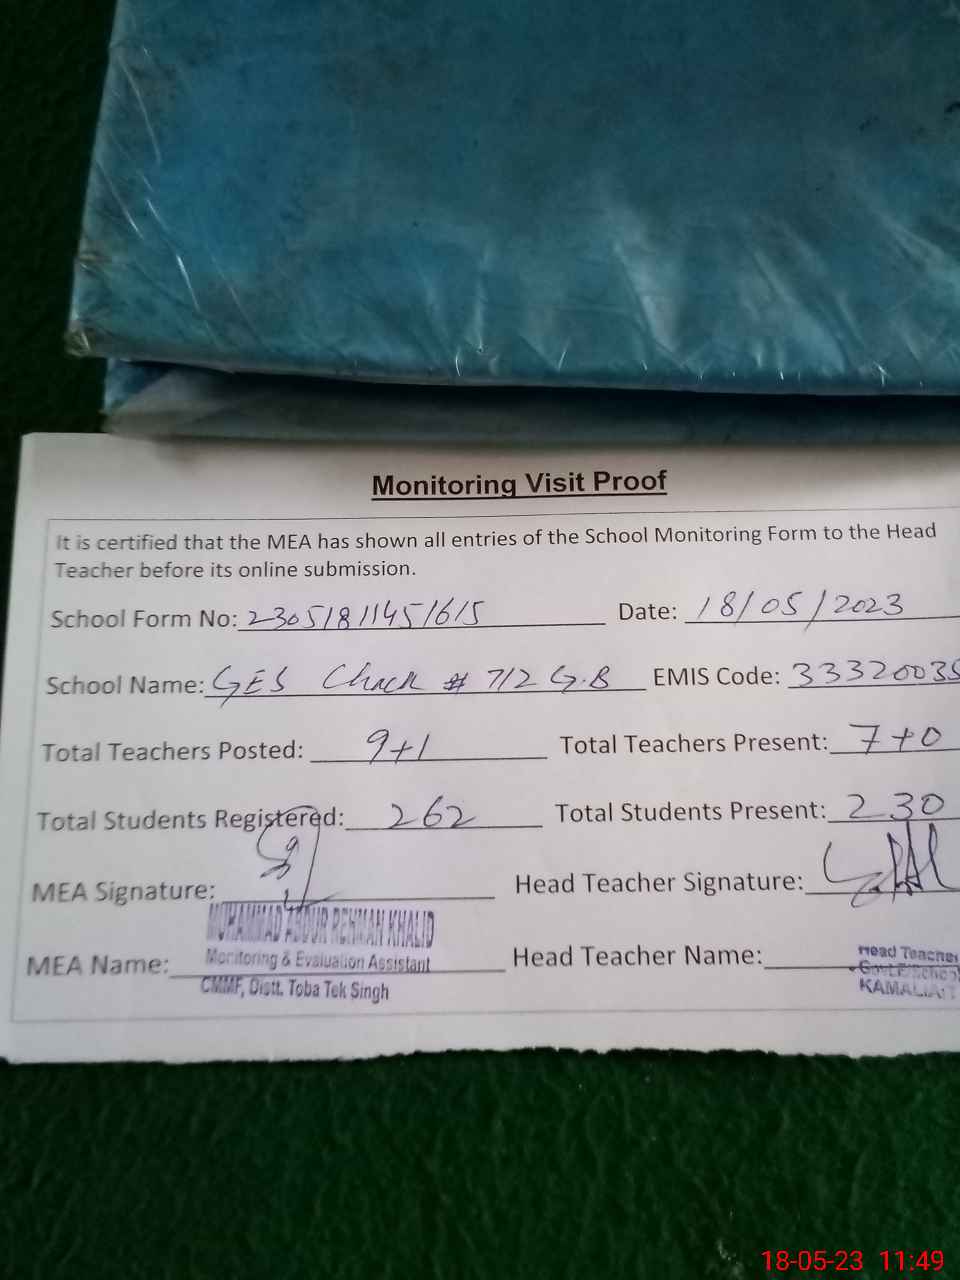 Monitoring Visit Proof
It is certified that the MEA has shown all entries of the School Monitoring Form to the Head
Teacher before its online submission.
School Form No: 23051811451615 Date: 18/05/2023
School Name: GES Chack # 712 G.B EMIS Code: 33320035
Total Teachers Posted: 9+1 Total Teachers Present: 7+0
Total Students Registered: 262 Total Students Present: 230
MEA Signature: Head Teacher Signature:
MUHAMMAD ABDUR REHMAN KHALID
MEA Name: Monitoring & Evaluation Assistant Head Teacher Name: Head Teacher
CMMF, Distt. Toba Tek Singh KAMALIA
18-05-23 11:49